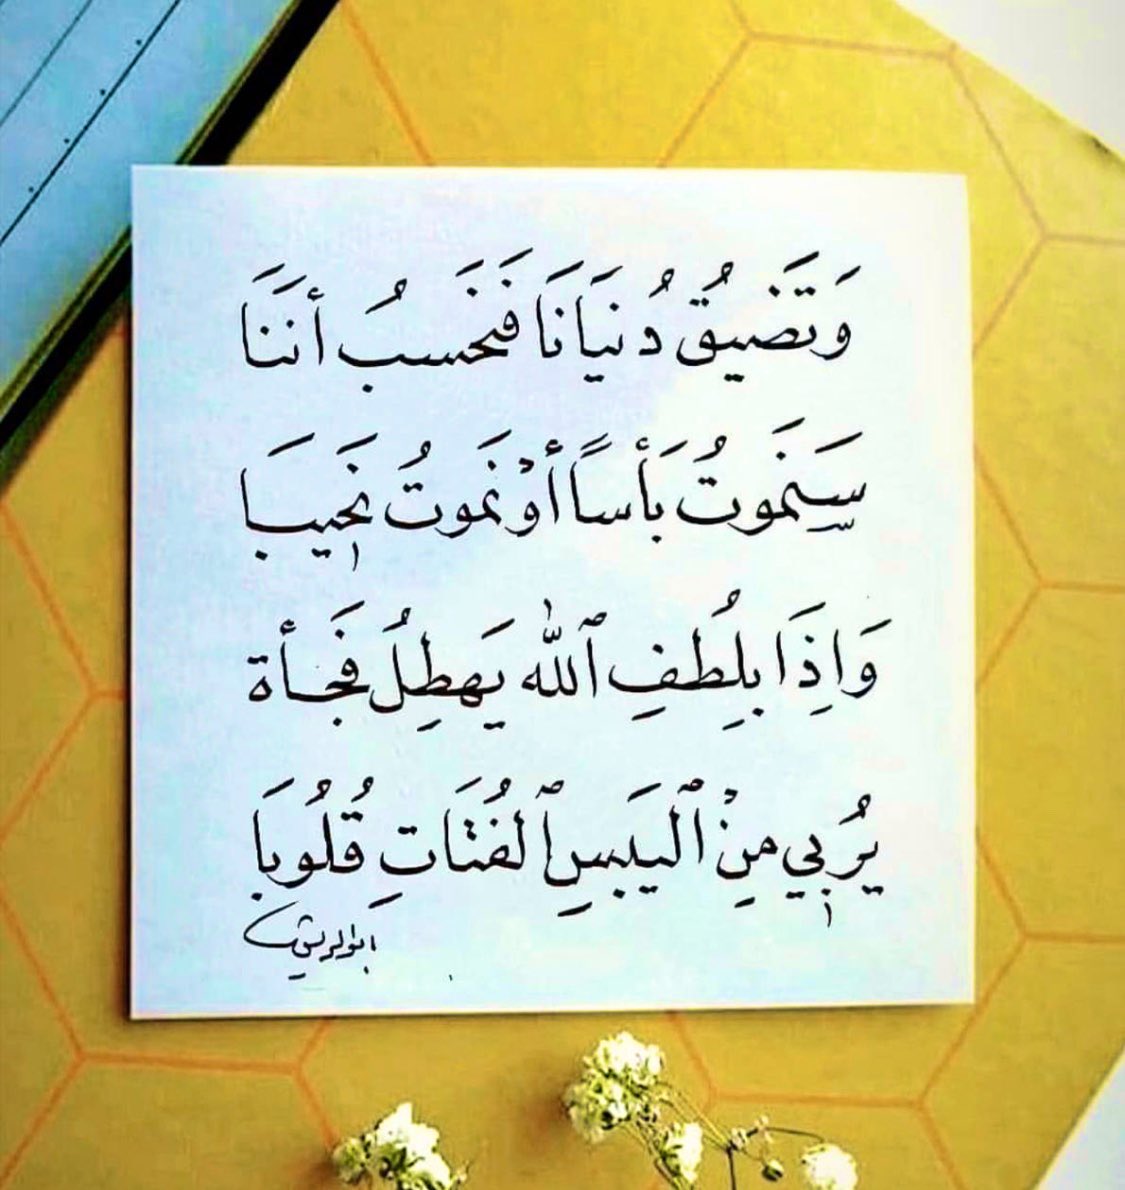 وَتَضيُق دُنيَانَا فَنَحسبُ أننَا
سَنَموتُ بَأساً أوْ نَموتُ نَحيبَا
وَإِذَا بِلُطفِ ٱللّٰه يَهطِلُ فَجأة
يُربي مِنْ ٱليَبسِ ٱلفُتَاتِ قُلُوبَا